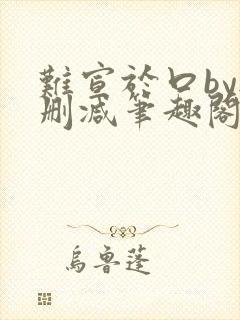 難宣於口by
刪減筆趣閣
烏魯蓬